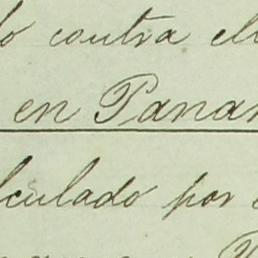 contra el
en Pana
culado por